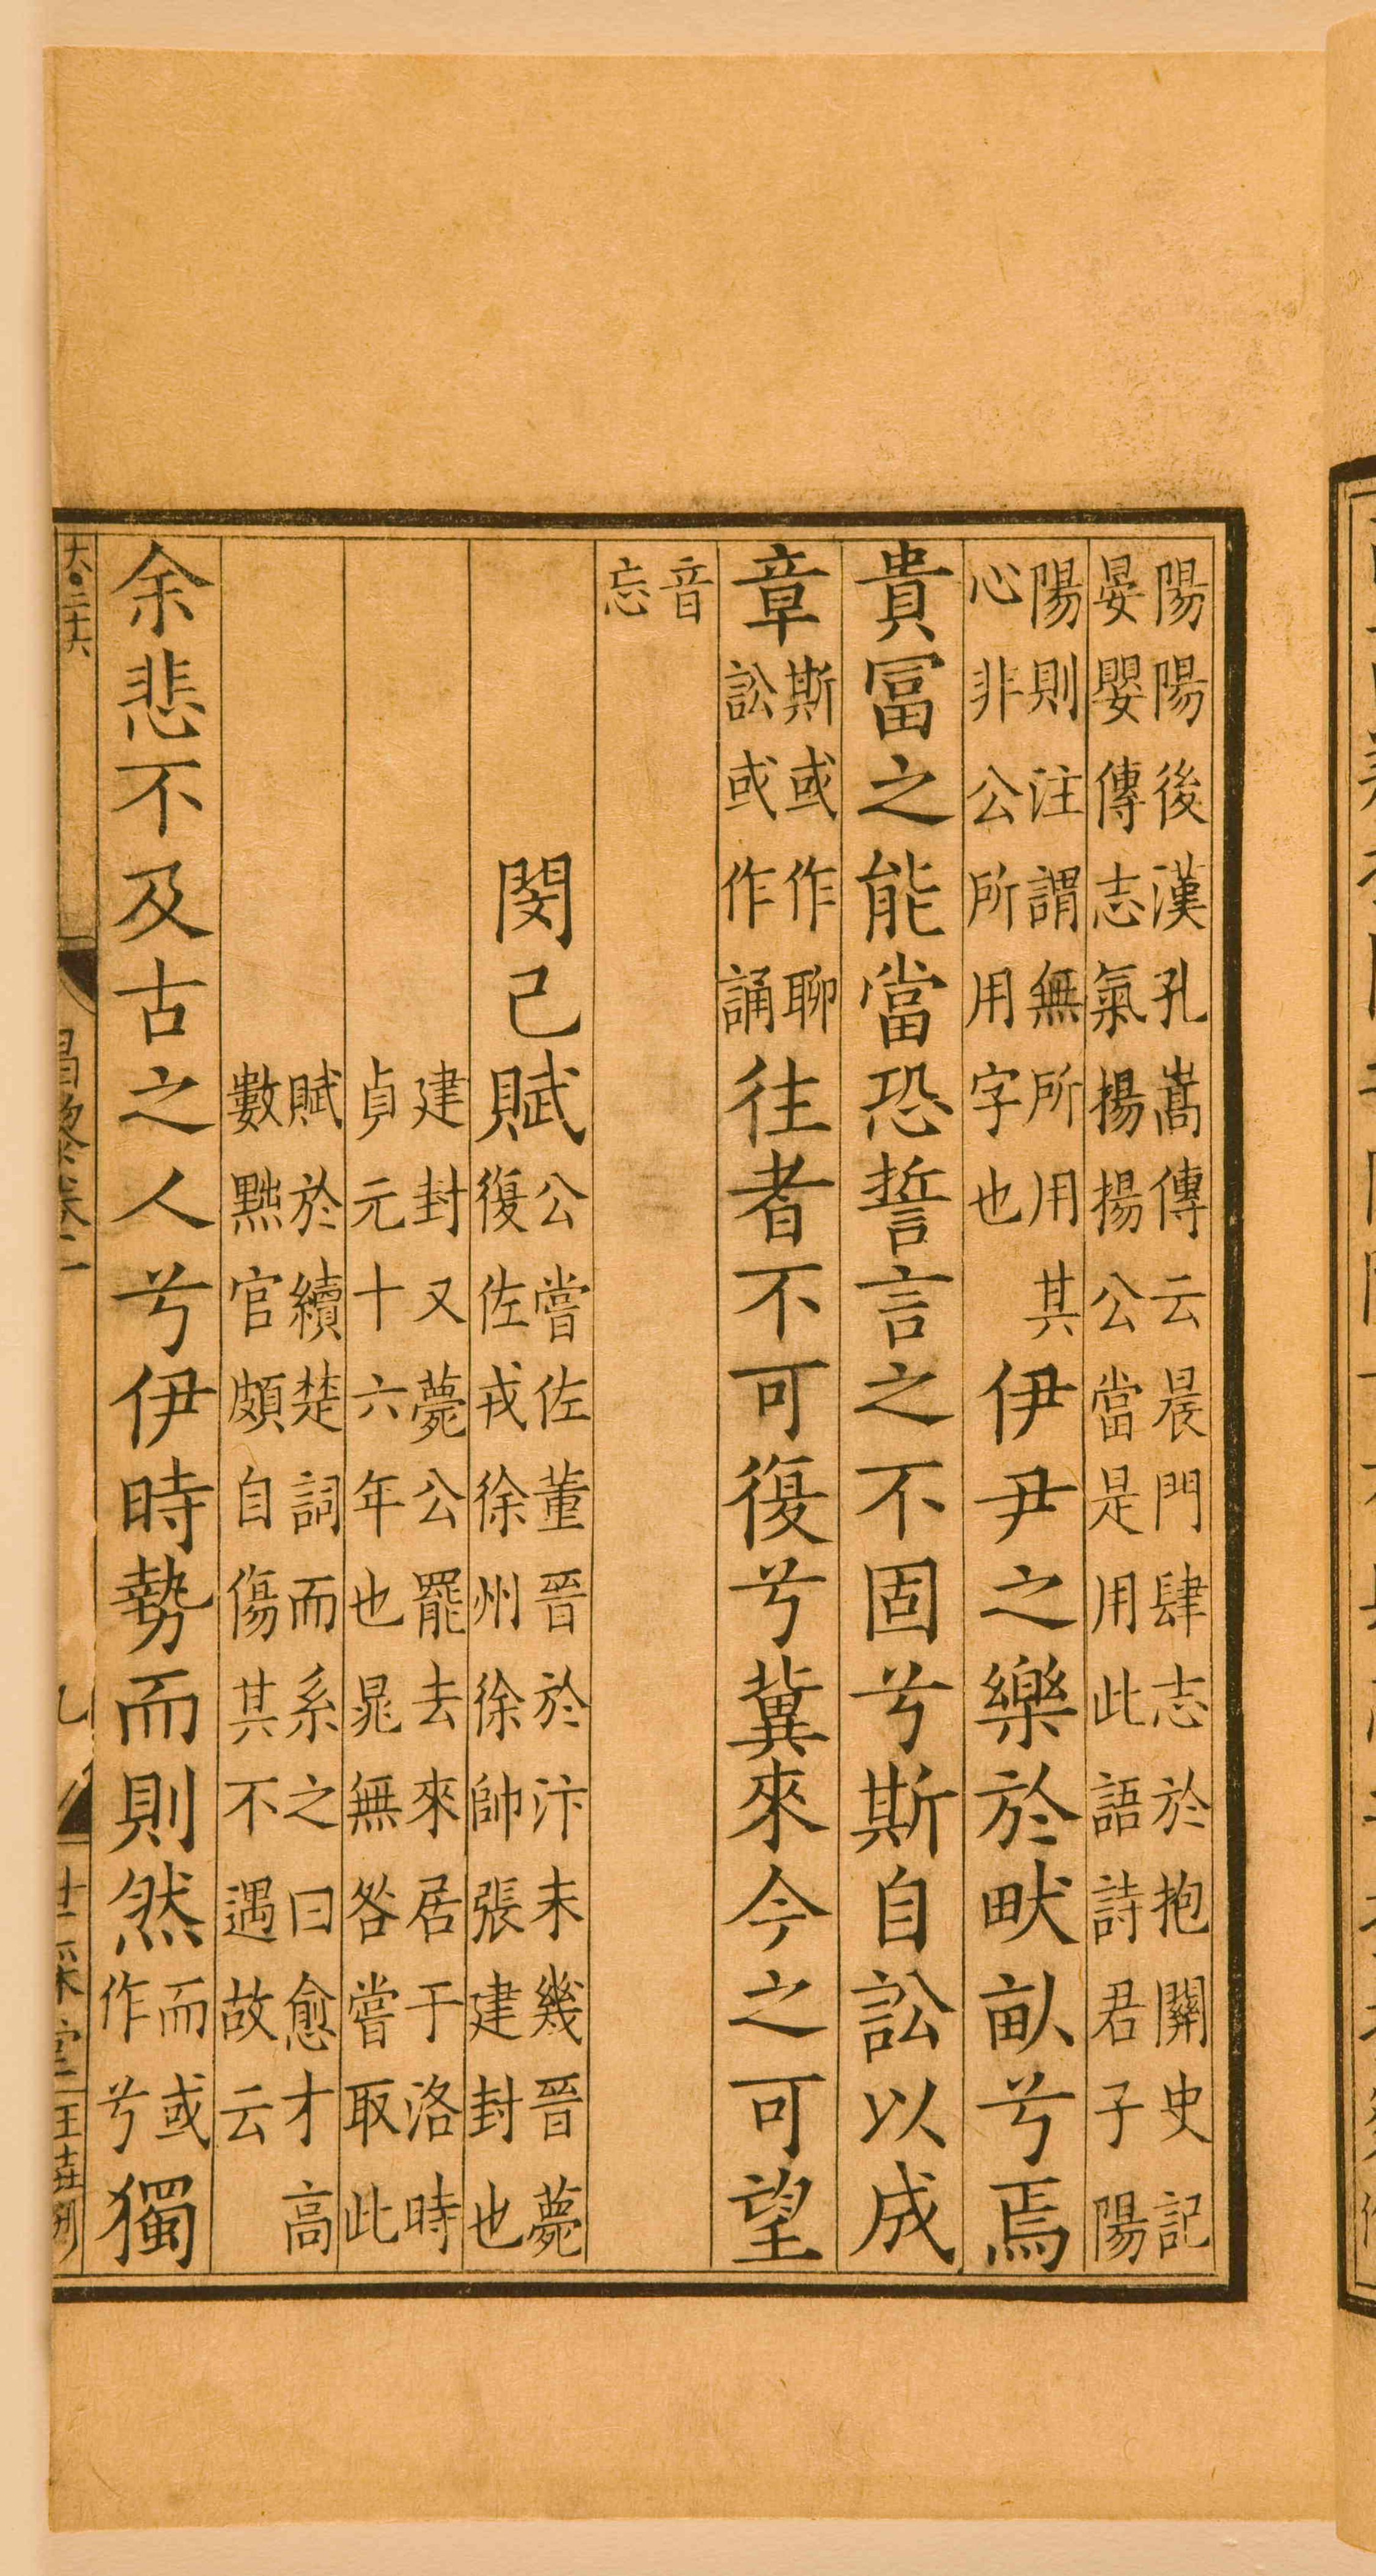 陽陽後漢孔嵩傳云晨門肆志於抱關史記
晏嬰傳志氣揚揚公當是用此語詩君子陽
陽則注謂無所用其
心非公所用字也
伊尹之樂於畎畝兮焉
貴冨之能當恐誓言之不固兮斯自訟以成
章
斯或作聊
訟或作誦
往者不可復兮冀來今之可望
音
忘
閔己賦
公嘗佐董晉於汴未幾晉薨
復佐戎徐州徐帥張建封也
建封又薨公罷去來居于洛時
貞元十六年也晁無咎嘗取此
賦於續楚詞而系之曰愈才高
數黜官頗自傷其不遇故云
余悲不及古之人兮伊時勢而則然
而或
作兮
獨
大·三十六
昌黎卷一
九
世綵堂